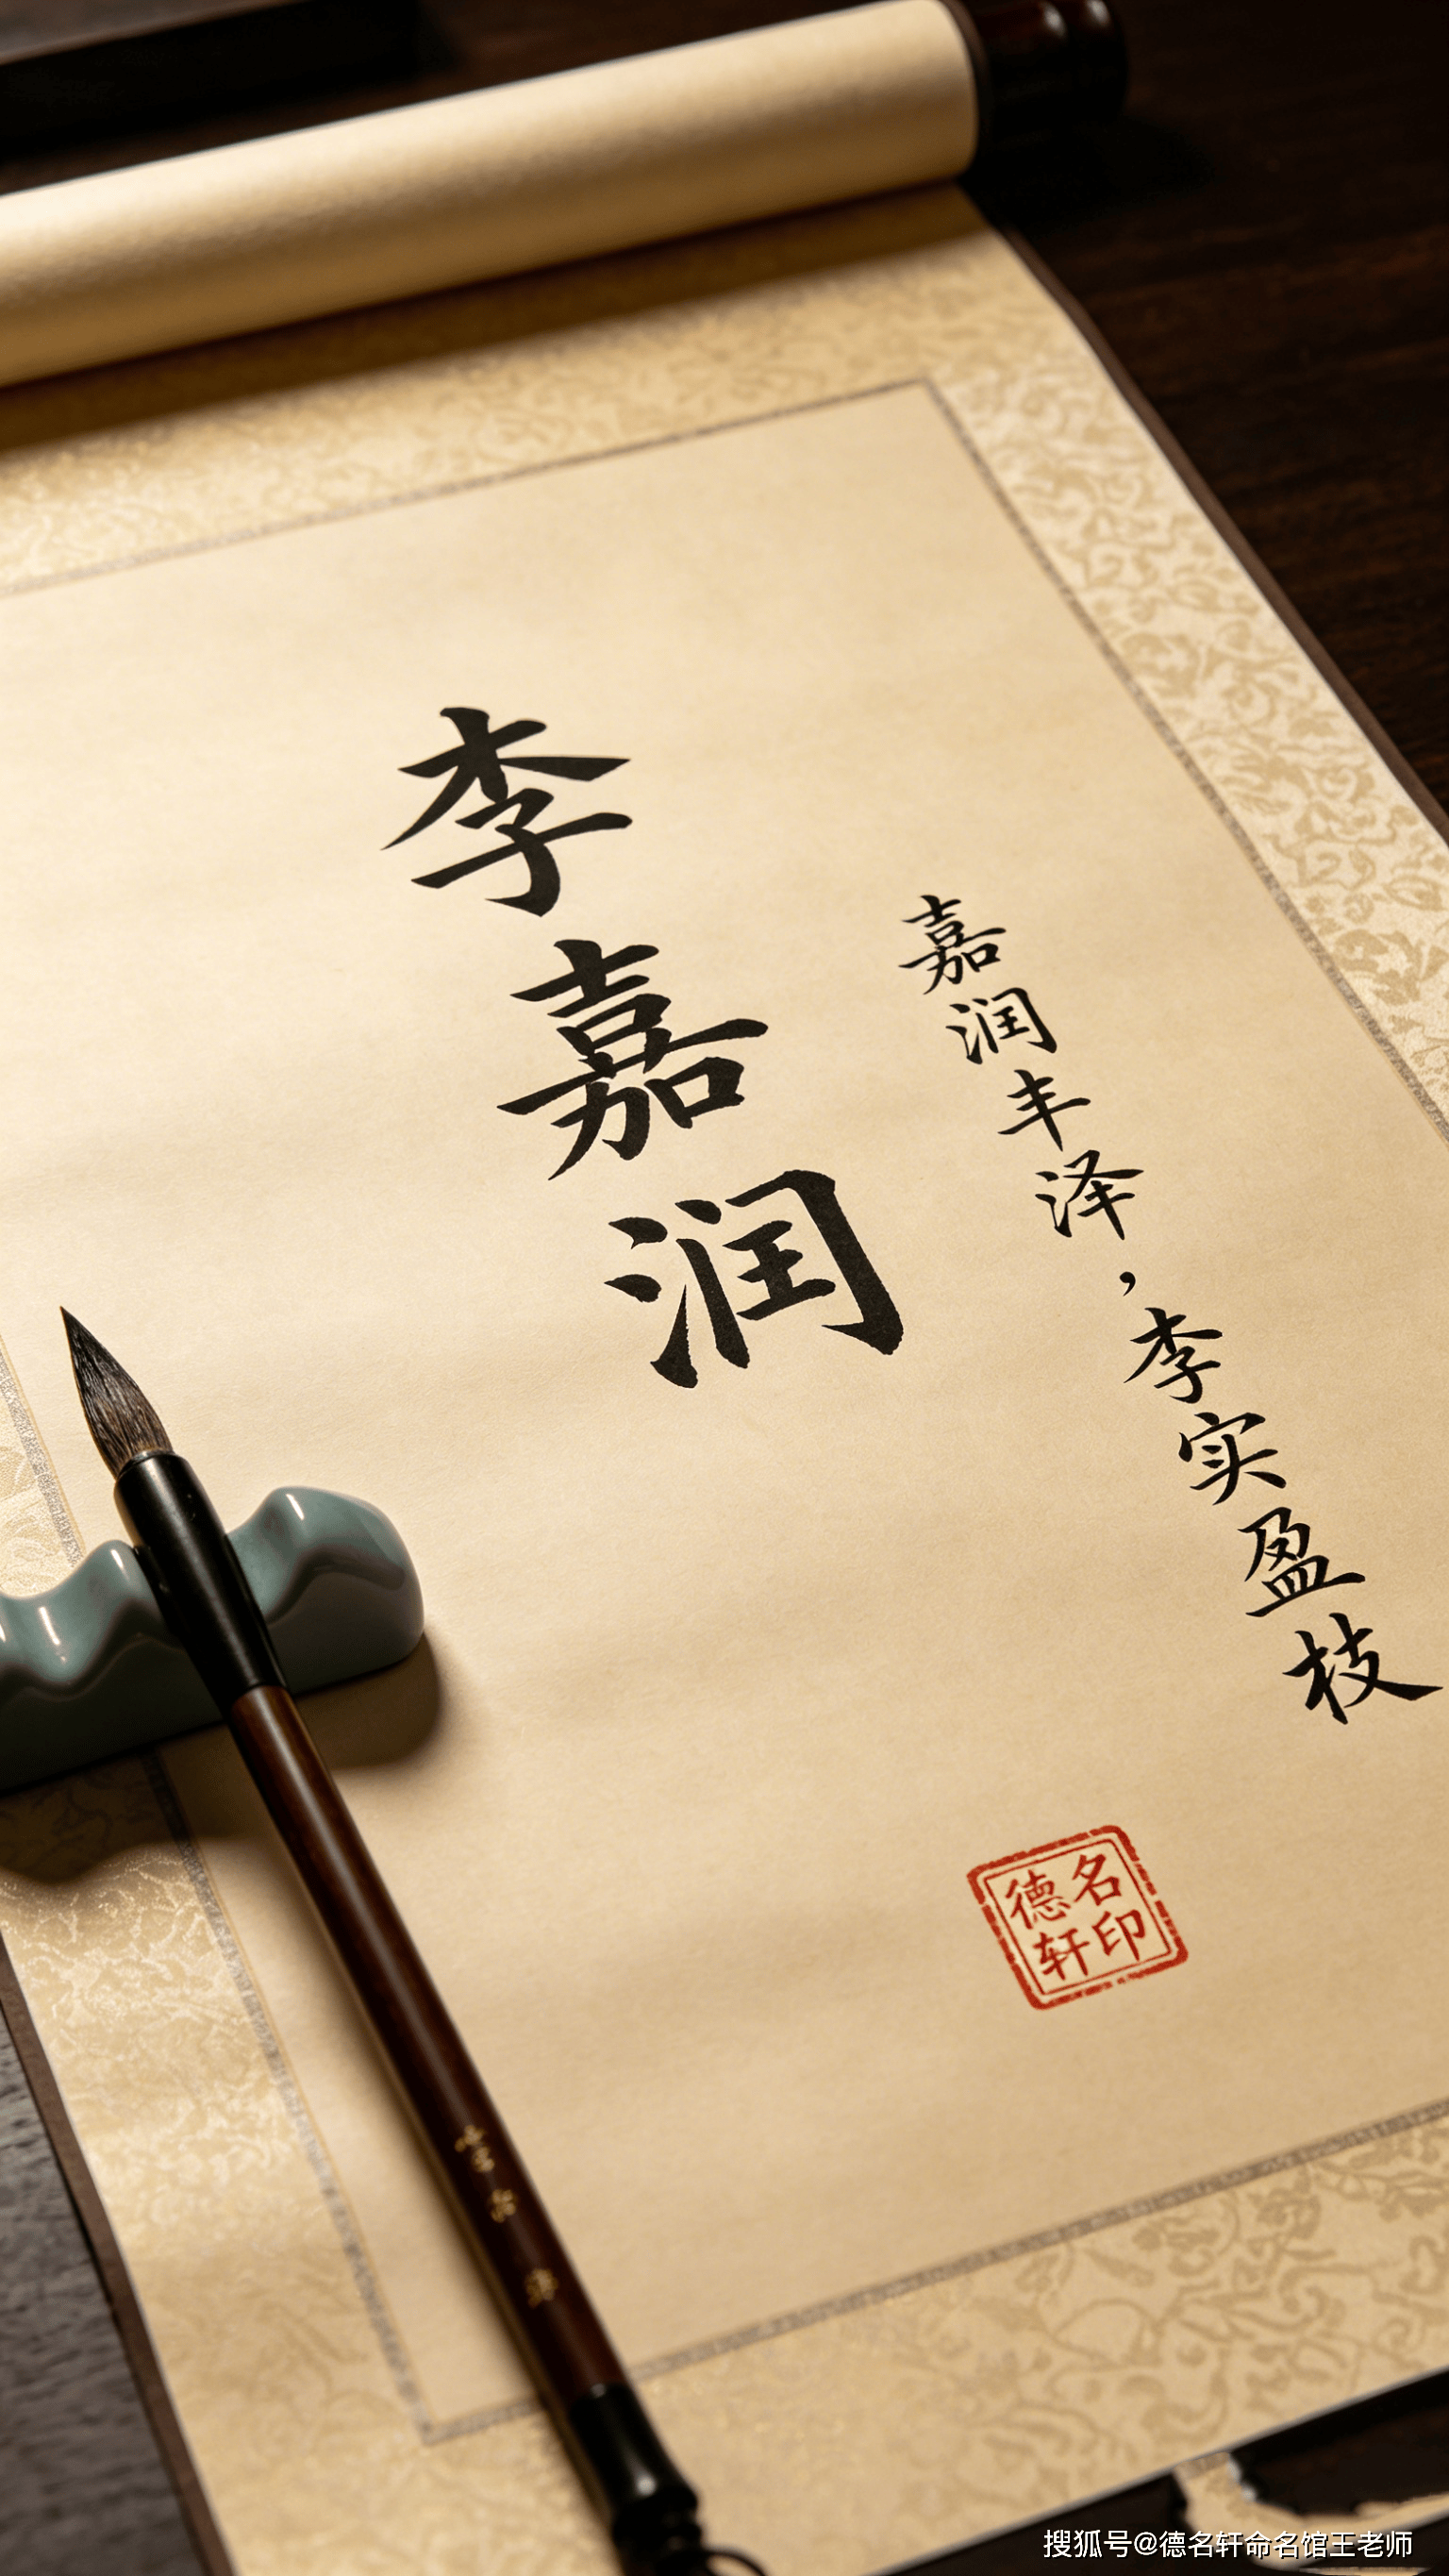 李嘉润
嘉润丰泽，李实盈枝
德名轩印
搜狐号@德名轩命名馆王老师